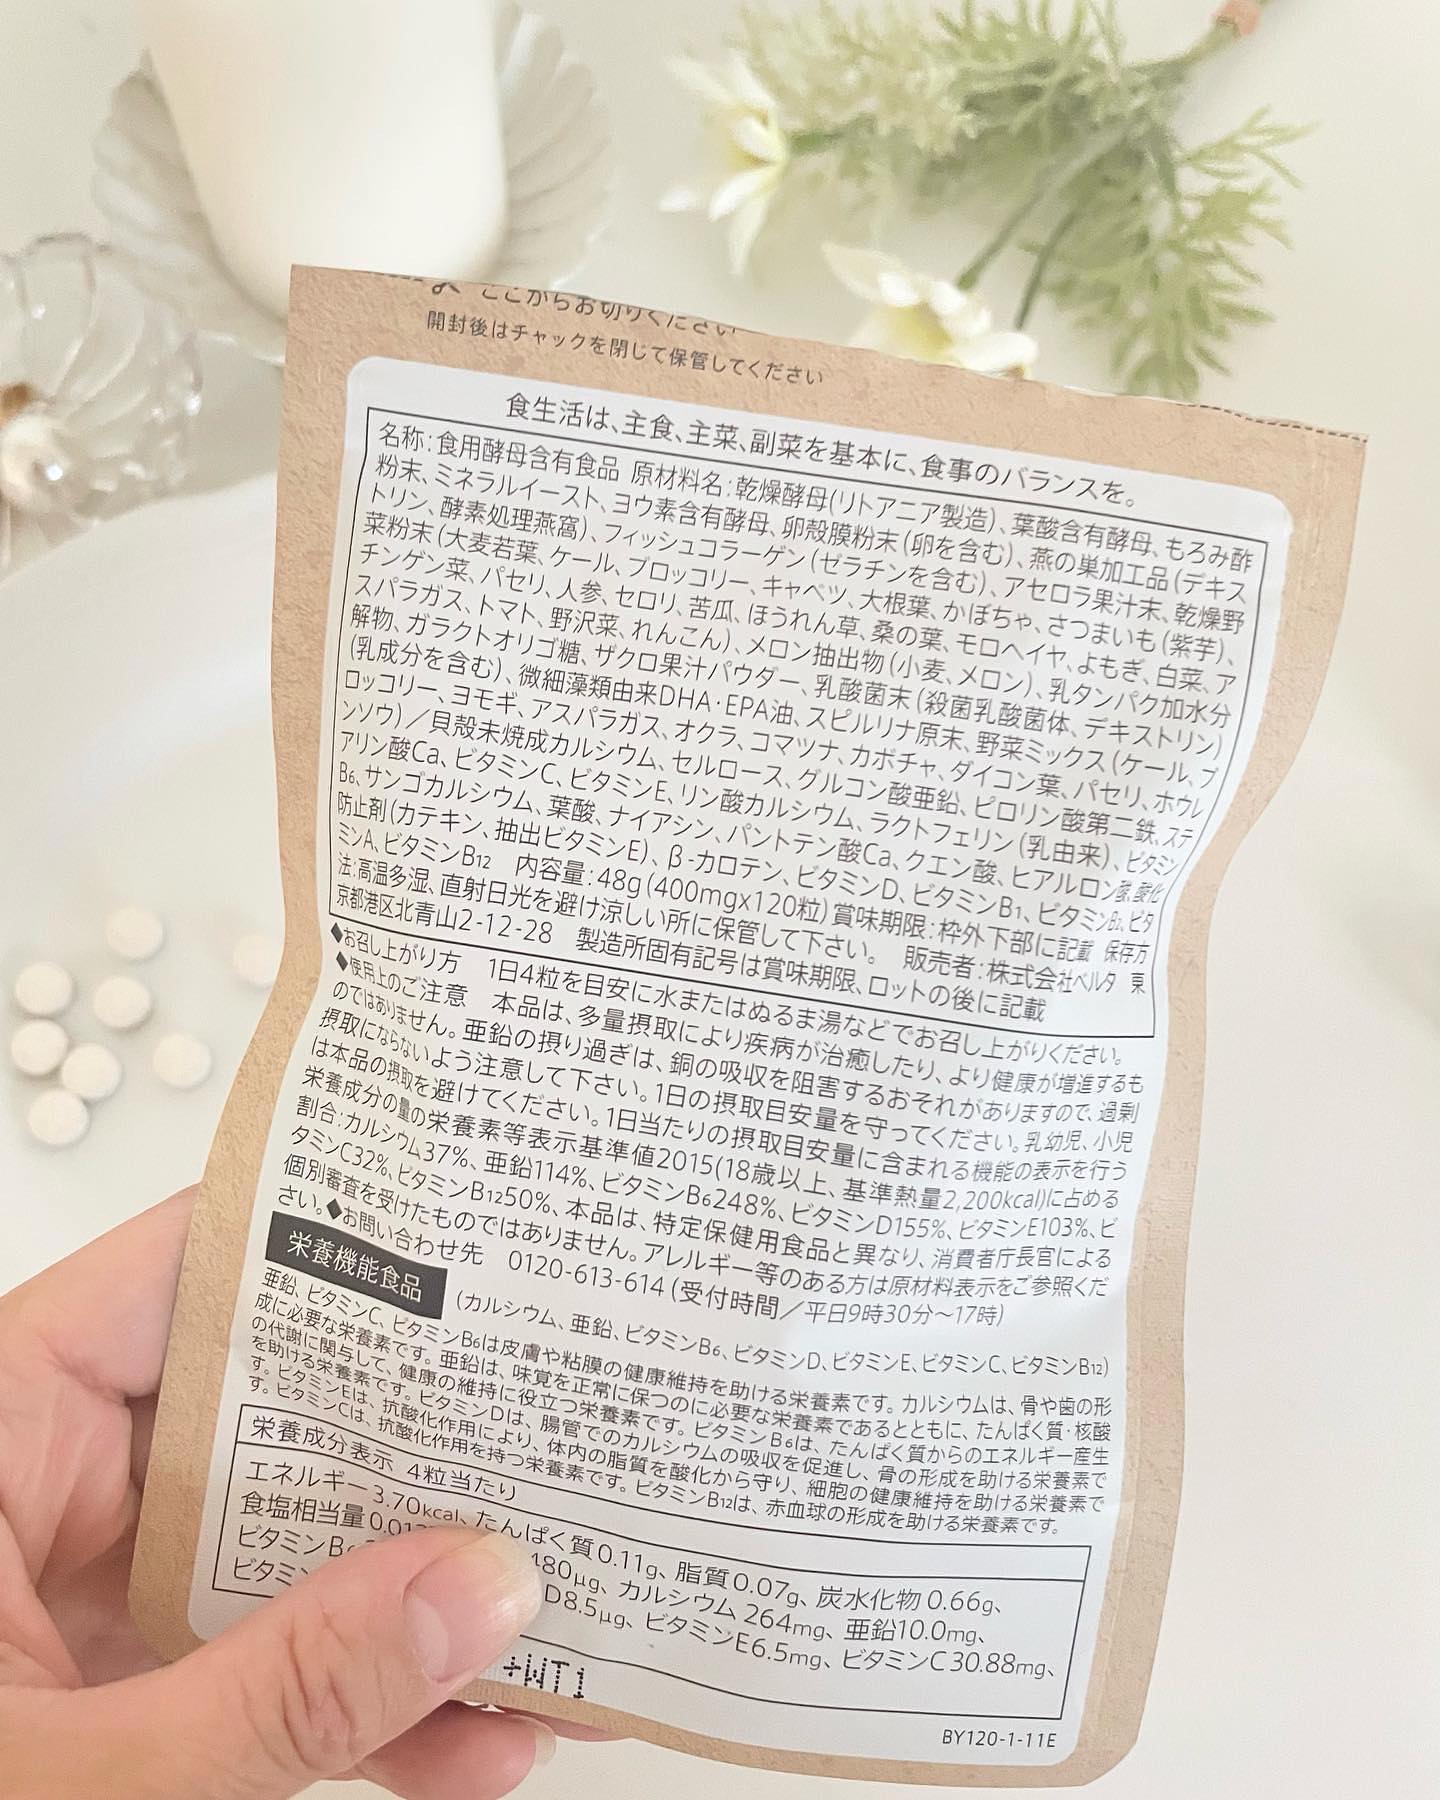 ここからお切りください
開封後はチャックを閉じて保管してください
食生活は、主食、主菜、副菜を基本に、食事のバランスを。
名称:食用酵母含有食品 原材料名:乾燥酵母(リトアニア製造)、葉酸含有酵母、もろみ酢
粉末、ミネラルイースト、ヨウ素含有酵母、卵殻膜粉末(卵を含む)、燕の巣加工品(デキス
トリン、酵素処理燕窩)、フィッシュコラーゲン(ゼラチンを含む)、アセロラ果汁末、乾燥野
菜粉末(大麦若葉、ケール、ブロッコリー、キャベツ、大根葉、かぼちゃ、さつまいも(紫芋)、
チンゲン菜、パセリ、人参、セロリ、苦瓜、ほうれん草、桑の葉、モロヘイヤ、よもぎ、白菜、ア
スパラガス、トマト、野沢菜、れんこん)、メロン抽出物(小麦、メロン)、乳タンパク加水分
解物、ガラクトオリゴ糖、ザクロ果汁パウダー、乳酸菌末(殺菌乳酸菌体、デキストリン)
(乳成分を含む)、微細藻類由来DHA・EPA油、スピルリナ原末、野菜ミックス(ケール、ブ
ロッコリー、ヨモギ、アスパラガス、オクラ、コマツナ、カボチャ、ダイコン葉、パセリ、ホウレ
ンソウ)/貝殻未焼成カルシウム、セルロース、グルコン酸亜鉛、ピロリン酸第二鉄、ステ
アリン酸Ca、ビタミンC、ビタミンE、リン酸カルシウム、ラクトフェリン(乳由来)、ビタミン
B6、サンゴカルシウム、葉酸、ナイアシン、パントテン酸Ca、クエン酸、ヒアルロン酸、酸化
防止剤(カテキン、抽出ビタミンE)、β-カロテン、ビタミンD、ビタミンB1、ビタミンB2、ビタ
ミンA、ビタミンB12 内容量:48g(400mgx120粒)賞味期限:枠外下部に記載 保存方
法:高温多湿、直射日光を避け涼しい所に保管して下さい。 販売者:株式会社ベルタ 東
京都港区北青山2-12-28 製造所固有記号は賞味期限、ロットの後に記載
◆お召し上がり方 1日4粒を目安に水またはぬるま湯などでお召し上がりください。
◆使用上のご注意 本品は、多量摂取により疾病が治癒したり、より健康が増進するも
のではありません。亜鉛の摂り過ぎは、銅の吸収を阻害するおそれがありますので、過剰
摂取にならないよう注意して下さい。1日の摂取目安量を守ってください。乳幼児、小児
は本品の摂取を避けてください。1日当たりの摂取目安量に含まれる機能の表示を行う
栄養成分の量の栄養素等表示基準値2015(18歳以上、基準熱量2,200kcal)に占める
割合:カルシウム37%、亜鉛114%、ビタミンB6248%、ビタミンD155%、ビタミンE103%、ビ
タミンC32%、ビタミンB1250%、本品は、特定保健用食品と異なり、消費者庁長官による
個別審査を受けたものではありません。アレルギー等のある方は原材料表示をご参照くだ
さい。◆お問い合わせ先 0120-613-614(受付時間/平日9時30分～17時)
栄養機能食品 (カルシウム、亜鉛、ビタミンB6、ビタミンD、ビタミンE、ビタミンC、ビタミンB12)
亜鉛、ビタミンC、ビタミンB6は皮膚や粘膜の健康維持を助ける栄養素です。カルシウムは、骨や歯の形
成に必要な栄養素です。亜鉛は、味覚を正常に保つのに必要な栄養素であるとともに、たんぱく質・核酸
の代謝に関与して、健康の維持に役立つ栄養素です。ビタミンB6は、たんぱく質からのエネルギー産生
を助ける栄養素です。ビタミンDは、腸管でのカルシウムの吸収を促進し、骨の形成を助ける栄養素で
す。ビタミンEは、抗酸化作用により、体内の脂質を酸化から守り、細胞の健康維持を助ける栄養素で
す。ビタミンCは、抗酸化作用を持つ栄養素です。ビタミンB12は、赤血球の形成を助ける栄養素です。
栄養成分表示 4粒当たり
エネルギー3.70kcal、たんぱく質0.11g、脂質0.07g、炭水化物0.66g、
食塩相当量 480μg、カルシウム 264mg、亜鉛10.0mg、
ビタミンB D8.5μg、ビタミンE6.5mg、ビタミンC30.88mg、
BY120-1-11E